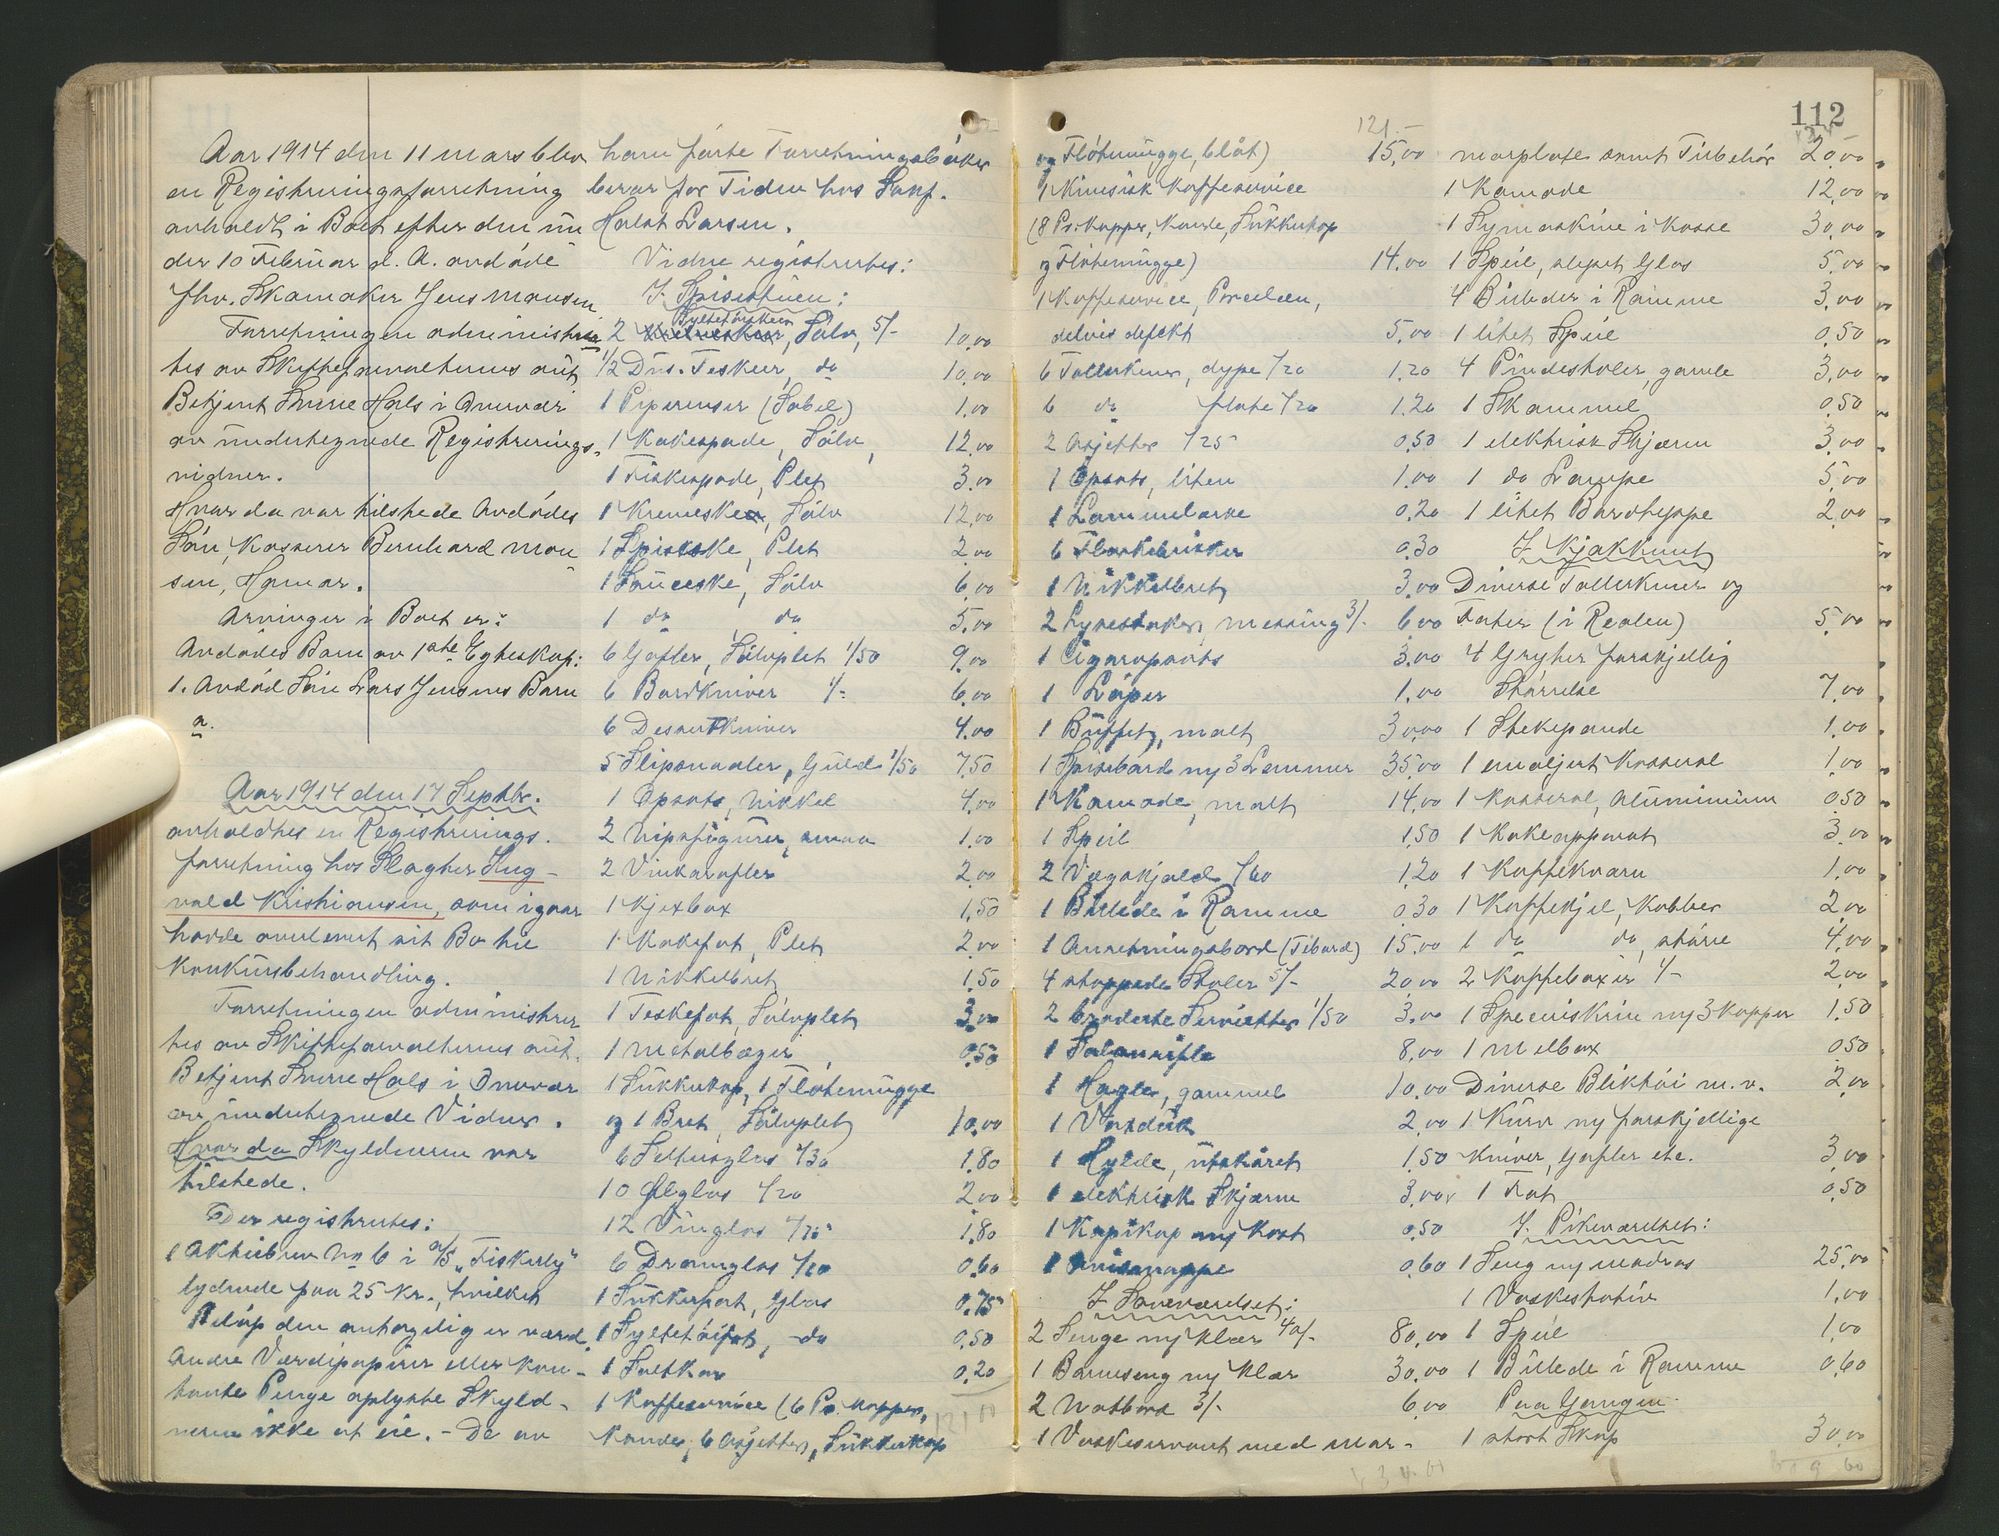 112
Aar 1914 den 11 mars blev
en Registreringsforretning
avholdt i Boet efter den un
der 10 Februar d. A. avdøde
fhv. Skomaker Jens Monsen
Forretningen administrer
tes av Skifteforvalterens aut.
Betjent Sverre Hals i Overvær
av undertegnede Registrerings-
vidner.
Hvor da var tilstede Avdødes
Søn, Kasserer Bernhard Mon
sen, Hamar.
Arvinger i Boet er:
Avdødes Barn av 1ste Egteskap:
1. Avdød Søn Lars Jensens Barn
a.
Aar 1914 den 17 Septbr.
avholdtes en Registrerings-
forretning hos Slagter Sig-
vald Kristiansen, som igaar
hadde overlevert sit Bo til
Konkursbehandling.
Forretningen administrer
tes av Skifteforvalterens aut.
Betjent Sverre Hals i Overvær
av undertegnede Vidner.
Hvor da Skyldneren var
tilstede.
Der registrertes:
1 Aktiebrev No 6 i A/S "Fiskerly"
lydende paa 25 Kr., hvilket
Beløp den antagelig er værd.
Andre Værdipapirer eller kon-
tante Penge oplyste Skyld-
neren ikke at eie. - De av
ham førte Forretningsbøker
beror for Tiden hos Sakf.
Holst Larsen.
Videre registrertes:
I Spisestuen:
Syltetøiskeer
2 , Sølv, 5/- 10,00
1/2 Dus. Teskeer, do 10,00
1 Piperenser (Sabel) 1,00
1 Kakespade, Sølv, 12,00
1 Fiskespade, Plet 3,00
1 Kremeske, Sølv 12,00
1 Spiseske, Plet 2,00
1 Sauceske, Sølv 6,00
1 do do 5,00
6 Gafler, Sølvplet 1/50 9,00
6 Bordkniver 1/- 6,00
6 Desertkniver 4,00
5 Slipsnaaler, Guld 1/50 7,50
1 Opsats, Nikkel 4,00
2 Nipsfigurer, smaa 1,00
2 Vinkarafler 2,00
1 Kjexbox 1,50
1 Kakefat, Plet 2,00
1 Nikkelbret 1,50
1 Teskefat, Sølvplet 3,00
1 Metalbæger 0,50
1 Sukkerkop, 1 Fløtemugge
og 1 Bret, Sølvplet 10,00
6 Selterglas 1/30 1,80
10 Ølglas 1/20 2,00
12 Vinglas 1/15 1,80
6 Dramglas 1/10 0,60
1 Sukkerfat, Glas 0,75
1 Syltetøifat, do 0,50
1 Saltkar 0,20
1 Kaffeservice (6 Pr. Kopper,
Kande, 6 Asjetter, Sukkerkop
121 00
121 -
og Fløtemugge, blåt) 15,00
1 Kinesisk Kaffeservice
(8 Pr. Kopper, Kande, Sukkerkop
og Fløtemugge) 14,00
1 Kaffeservice, Porcelæn,
delvis defekt 5,00
6 Tallerkener, dype 1/20 1,20
6 do flate 1/20 1,20
2 Asjetter 1/25 0,50
1 Opsats, liten 1,00
1 Lommelærke 0,20
6 Flaskebrikker 0,30
1 Nikkelbret 3,00
2 Lysestaker, messing 3/- 6,00
1 Cigaropsats 3,00
1 Løper 1,00
1 Buffet, malt 30,00
1 Spisebord m/ 3 Lemmer 35,00
1 Komode, malt 14,00
1 Speil 1,50
2 Vægskjold 1/60 1,20
1 Billede i Ramme 0,30
1 Anretningsbord (Tebord) 15,00
4 stoppede Stoler 5/- 20,00
2 broderte Servietter 1/50 3,00
1 Salonrifle 8,00
1 Hagle, gammel 10,00
1 Voxduk 2,00
1 Hylde, utskåret 1,50
1 elektrisk Skjærm 3,00
1 Kopskop m/ Kost 0,50
1 0,60
I Soveværelset:
2 Senge m/ Klær 40/- 80,00
1 Barneseng m/ Klær 30,00
2 Natbord 3/- 6,00
1 Vaskeservant med mar-
morplate samt Tilbehør 20,00
1 Komode 12,00
1 Symaskine i Kasse 30,00
1 Speil, slepet Glas 5,00
4 Billeder i Ramme 3,00
1 litet Speil 0,50
4 Pindestoler, gamle 3,00
1 Skammel 0,50
1 elektrisk Skjærm 3,00
1 do Lampe 5,00
1 litet Bordteppe 2,00
I Kjøkkenet
Diverse Tallerkener og
Fater (i Reolen) 5,00
4 Gryter forskjellig
Størrelse 7,00
1 Stekepande 1,00
1 emaljert Kasserol 1,00
1 Kasserol, Aluminium 0,50
1 Kakeapparat 3,00
1 Kaffekværn 1,00
1 Kaffekjel, Kobber 2,00
1 do do, større 4,00
2 Kaffeboxer 1/- 2,00
1 Speceriskrin m/ 3 Kopper 1,50
1 Melbox 0,50
Diverse Bliktøi m.v. 2,00
1 Kurv m/ forskjellige
Kniver, Gafler etc. 3,00
1 Fat 0,50
I Pikeværelset:
1 Seng m/ Madras 25,00
1 Vaskestativ 1,00
1 Speil 1,00
1 Billede i Ramme 0,60
Paa Gangen
1 stort Skap 30,00